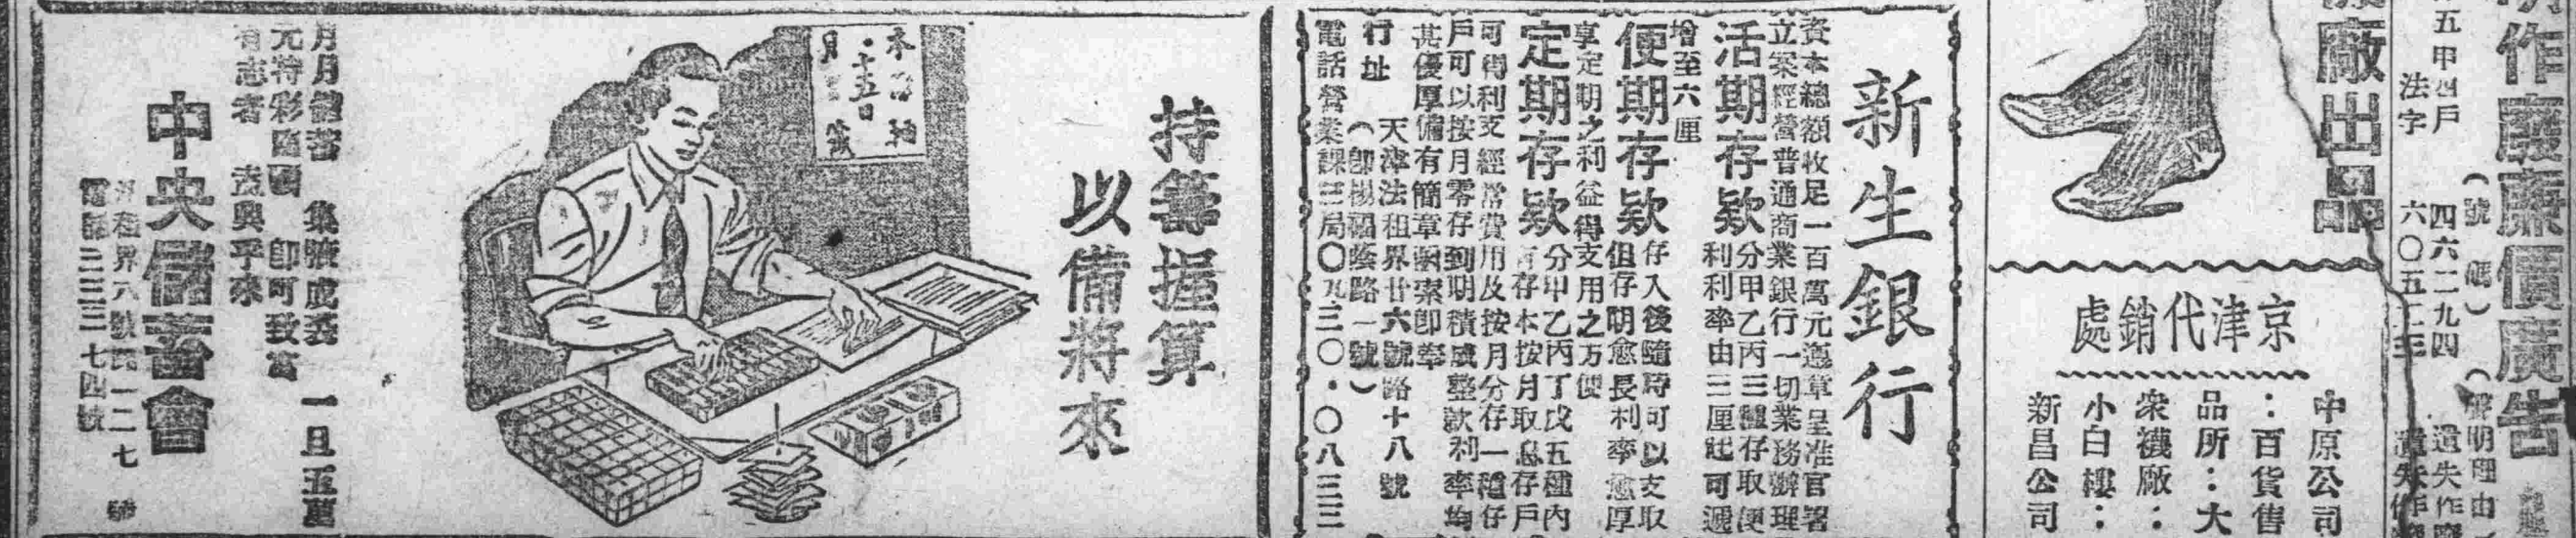 明作廠廉價廣告
五甲四戶
法字
(號碼)
四六二一九四
六〇五二三
聲明理由
遺失作廢
遺失作廢
廠出品
京津代銷處
中原公司
：百貨售
品所：大
衆襪廠：
小白樓：
新昌公司
新生銀行
資本總額收足一百萬元遵章呈准官署
立案經營普通商業銀行一切業務辦理
活期存欵
分甲乙丙三種存取便
利利率由三厘起可遞
增至六厘
便期存欵
存入後隨時可以支取
但存期愈長利率愈厚
享定期之利益得支用之方便
定期存欵
分甲乙丙丁戊五種內
有存本按月取息存戶
可得利支經常費用及按月分存一種存
戶可以按月零存到期積成整欵利率均
甚優厚備有簡章函索即奉
行址 天津法租界廿六號路十八號
(即楊福蔭路一號)
電話營業課三局〇九三〇・〇八三三
持籌握算
以備將來
本會
二十五日
月
抽
籤
月月儲蓄 集腋成裘 一旦五萬
元特彩 即可致富
有志者 盍興乎來
中央儲蓄會
租界八號路一二七號
電話三三三七四號